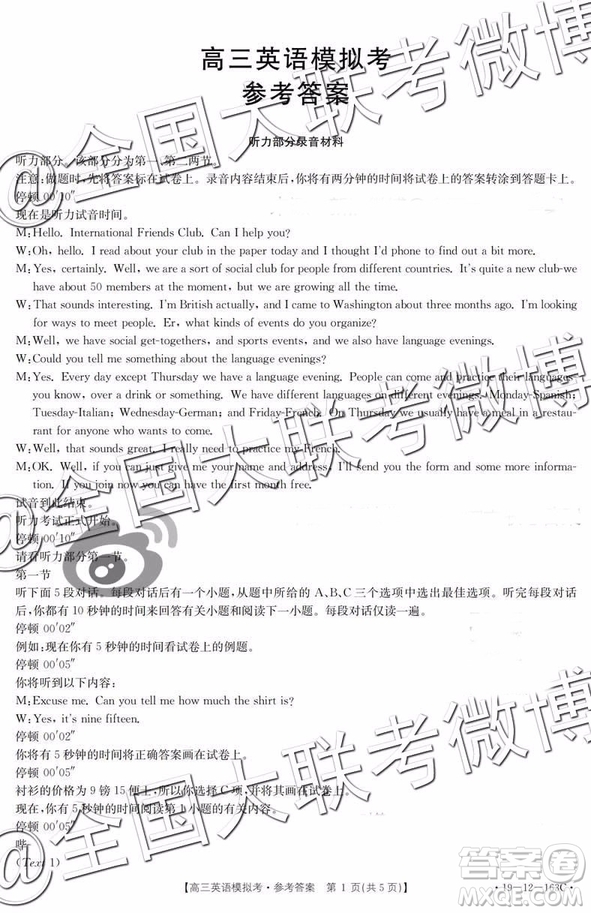 高三英语模拟考
参考答案
听力部分录音材料
听力部分。该部分分为第一、第二两节。
注意:做题时,先将答案标在试卷上。录音内容结束后,你将有两分钟的时间将试卷上的答案转涂到答题卡上。
停顿 00′10″
现在是听力试音时间。
M: Hello. International Friends Club. Can I help you?
W: Oh, hello. I read about your club in the paper today and I thought I'd phone to find out a bit more.
M: Yes, certainly. Well, we are a sort of social club for people from different countries. It's quite a new club-we
have about 50 members at the moment, but we are growing all the time.
W: That sounds interesting. I'm British actually, and I came to Washington about three months ago. I'm looking
for ways to meet people. Er, what kinds of events do you organize?
M: Well, we have social get-togethers, and sports events, and we also have language evenings.
W: Could you tell me something about the language evenings?
M: Yes. Every day except Thursday we have a language evening. People can come and practice their languages-
you know, over a drink or something. We have different languages on different evenings. Monday-Spanish;
Tuesday-Italian; Wednesday-German; and Friday-French. On Thursday we usually have a meal in a restau-
rant for anyone who wants to come.
W: Well, that sounds great. I really need to practice my French.
M: OK. Well, if you can just give me your name and address, I'll send you the form and some more informa-
tion. If you join now you can have the first month free.
试音到此结束。
听力考试正式开始。
停顿 00′10″
请看听力部分第一节。
第一节
听下面 5 段对话。每段对话后有一个小题,从题中所给的 A、B、C 三个选项中选出最佳选项。听完每段对话
后,你都有 10 秒钟的时间来回答有关小题和阅读下一小题。每段对话仅读一遍。
停顿 00′02″
例如:现在你有 5 秒钟的时间看试卷上的例题。
停顿 00′05″
你将听到以下内容:
M: Excuse me. Can you tell me how much the shirt is?
W: Yes, it's nine fifteen.
停顿 00′02″
你将有 5 秒钟的时间将正确答案画在试卷上。
停顿 00′05″
衬衫的价格为 9 镑 15 便士,所以你选择 C 项,并将其标在试卷上。
现在,你有 5 秒钟的时间阅读第 1 小题的有关内容。
停顿 00′05″
哔
(Text 1)
【高三英语模拟考·参考答案 第 1 页(共 5 页)】
·19-12-163C·
@全国大联考微博
@全国大联考微博
@全国大联考微博
答案卷
MXQE.COM